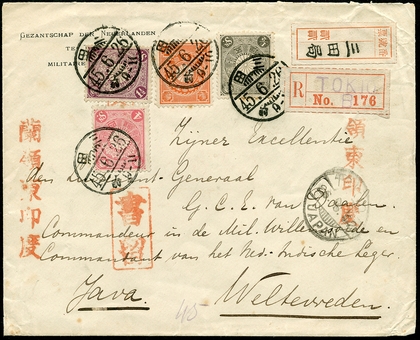 GEZANTSCHAP DER NEDERLANDEN
TE
MILITAIRE
三田
45.6.26
三田
45.6.26
三田
45.6.26
三田
45.6.26
三田局
TOKIO
R No. A 176
書留
蘭領東印度
蘭領東印度
Zijner Excellentie
den Luitenant-Generaal
G. C. E. van Daalen
Commandeur in de Mil. Willemsorde en
Commandant van het Ned. Indische Leger.
Java. Weltevreden.